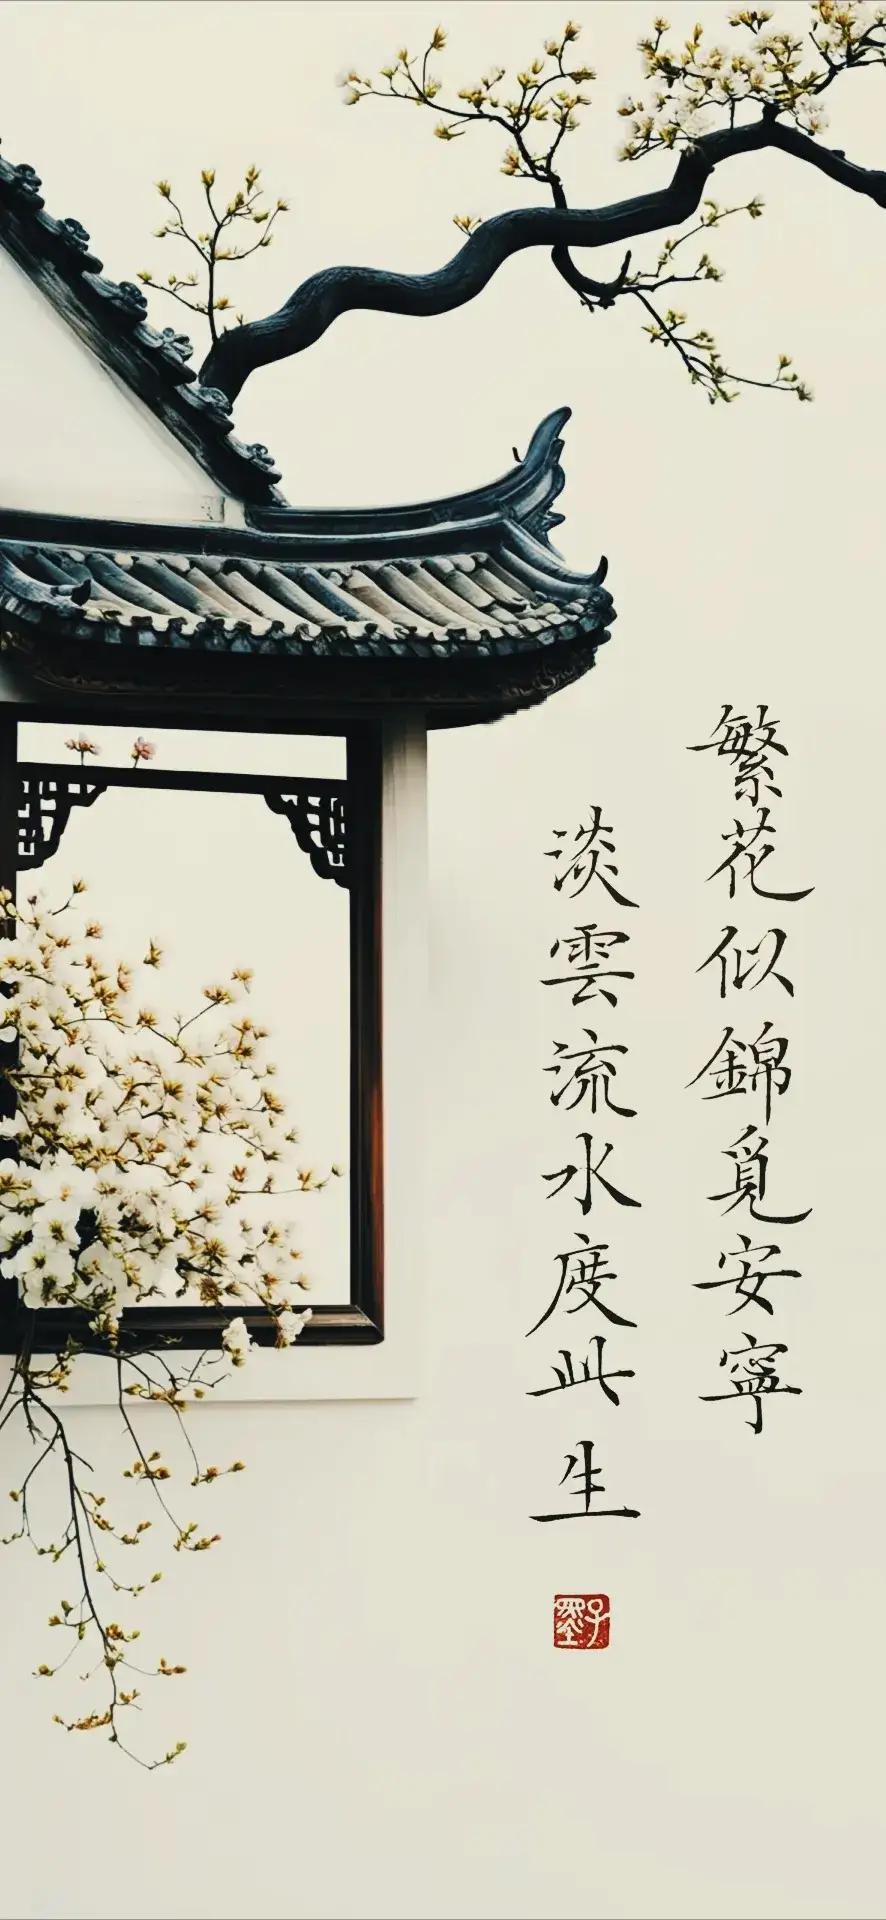 繁花似錦覓安寧
淡雲流水度此生
子墨